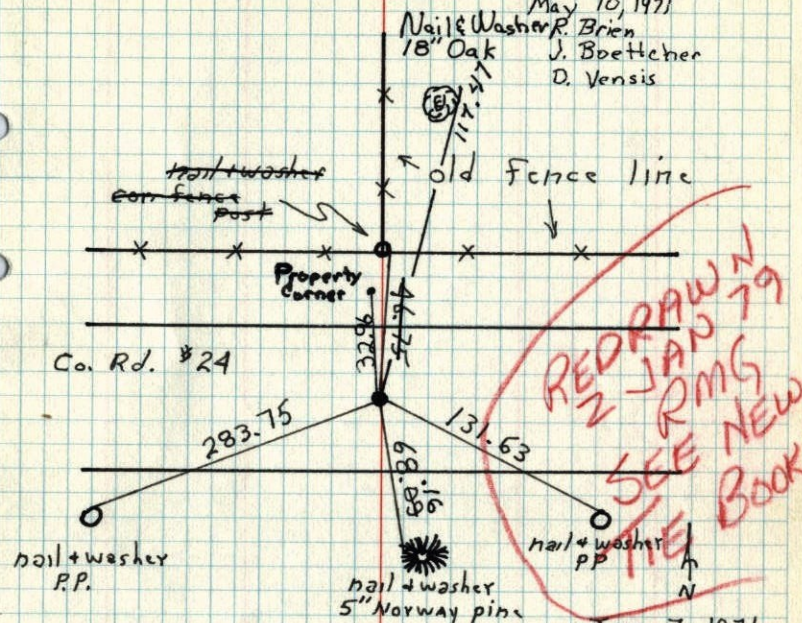 May 10, 1971
Nail & Washer R. Brien
18" Oak J. Boettcher
D. Vensis
117.47
old fence line
nail + washer
cor. fence
post
Property
Corner
32.96
46.75
Co. Rd. #24
283.75
131.63
68.89
nail + washer
P.P.
nail + washer
5" Norway pine
nail + washer
PP
N
REDRAWN
2 JAN 79
RMG
SEE NEW
TIE BOOK